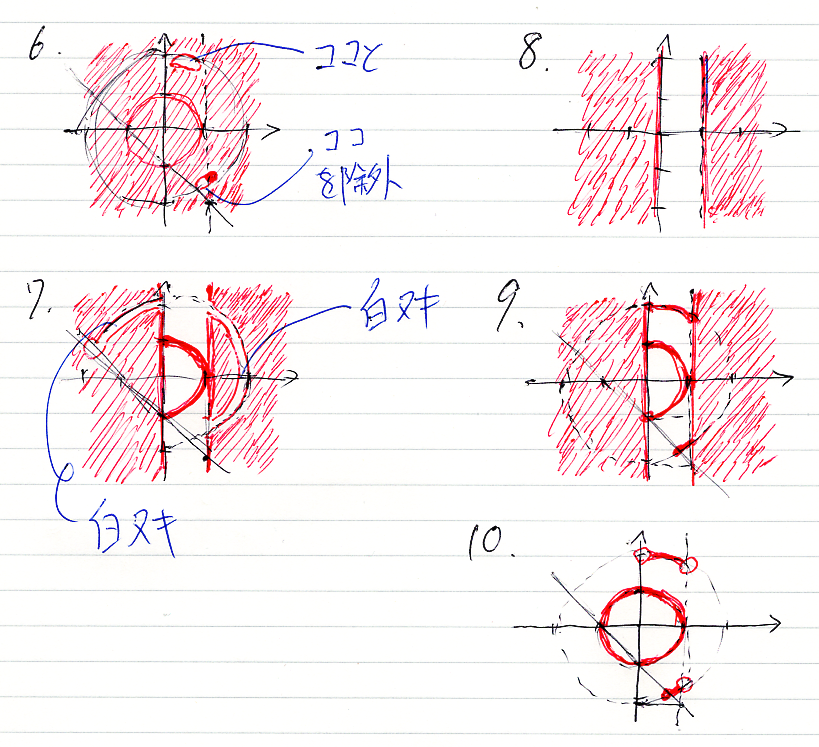 6.
ココと
ココ
を除外
8.
7.
白ヌキ
白ヌキ
9.
10.